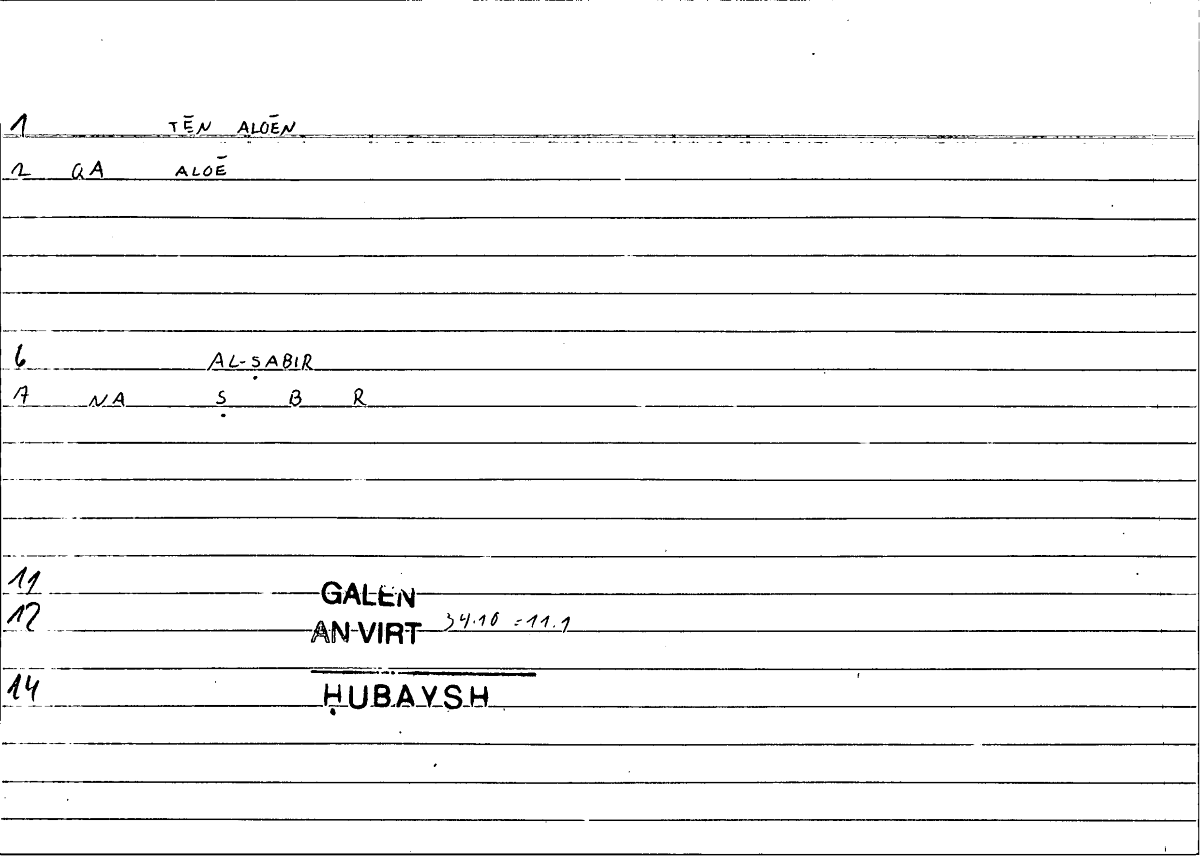 1 TĒN ALOĒN
2 QA ALOĒ
6 AL-ṢABIR
7 NA Ṣ B R
11 GALEN
12 AN VIRT 34.10 = 11.1
14 ḤUBAYSH